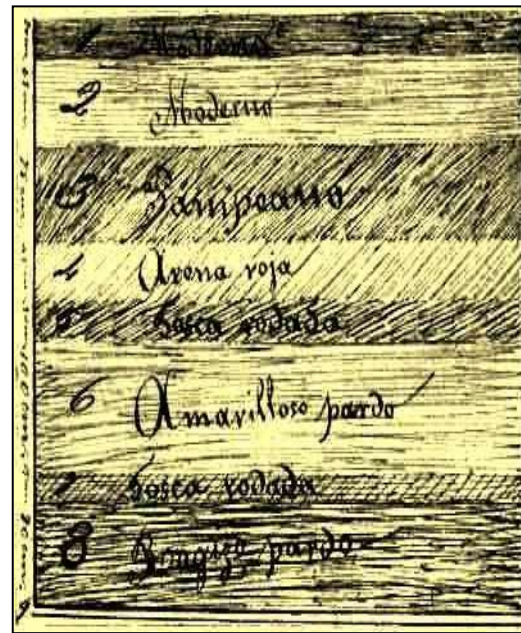 1 Moderno
2 Moderno
3 Pampeano
4 Arena roja
5 Tosca rodada
6 Amarilloso pardo
7 Tosca rodada
8 pardo